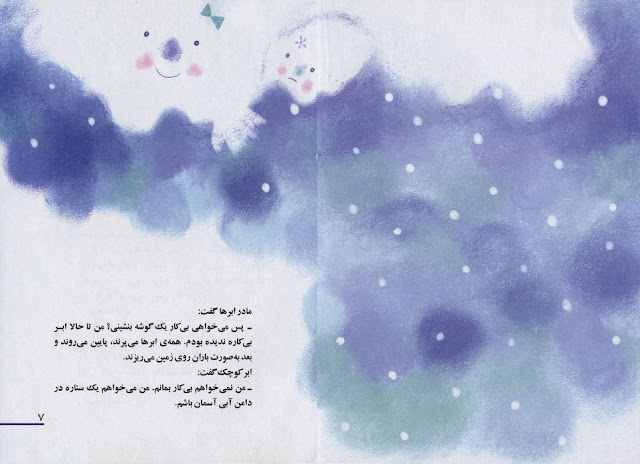 مادر ابرها گفت:
ـ پس می‌خواهی بی‌کار یک گوشه بنشینی؟ من تا حالا ابـر
بی‌کاره ندیده بودم. همه‌ی ابرها می‌پرند، پایین می‌روند و
بعد به‌صورت باران روی زمین می‌ریزند.
ابر کوچک گفت:
ـ من نمی‌خواهم بی‌کار بمانم. من می‌خواهم یک ستاره در
دامن آبی آسمان باشم.
۷